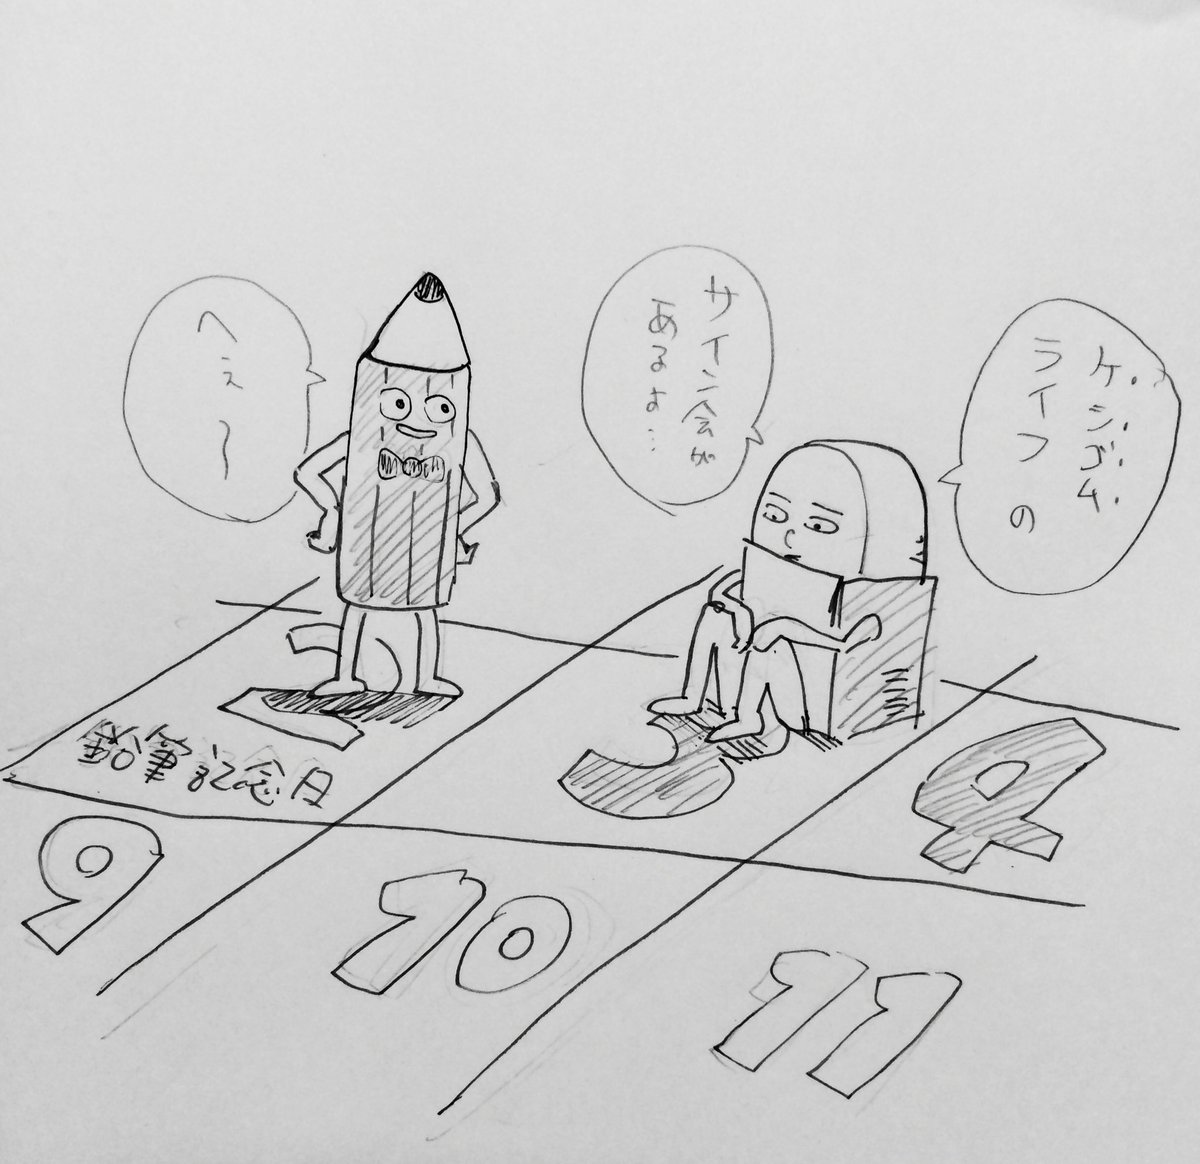 ケシゴム
ライフの
サイン会が
あるよ…
へぇ〜
2
3
4
鉛筆記念日
9
10
11